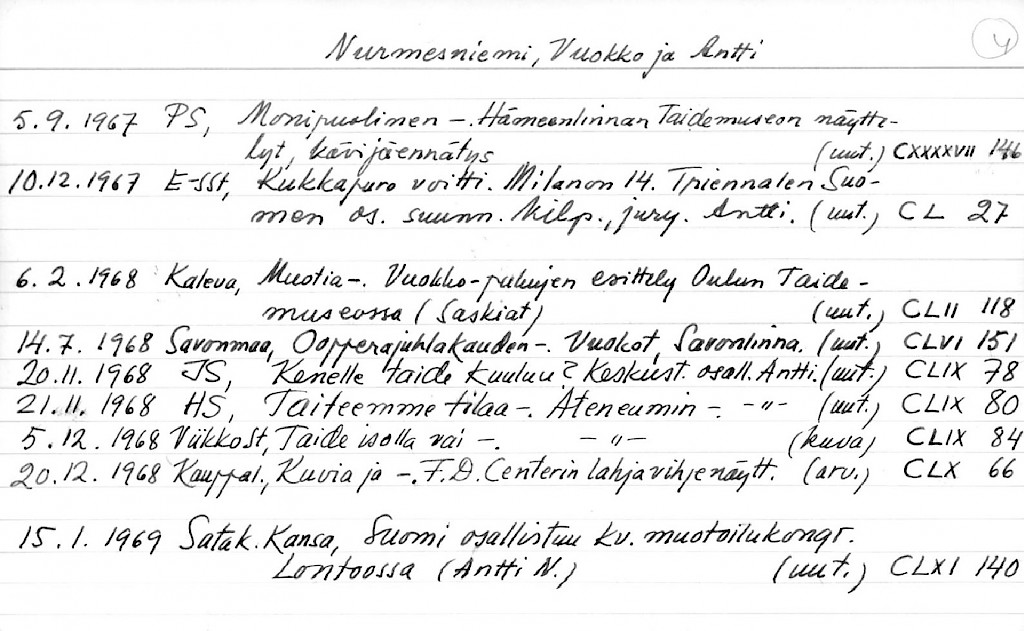 4
Nurmesniemi, Vuokko ja Antti
5.9.1967 PS, Monipuolinen -. Hämeenlinnan Taidemuseon näytte-
lyt, kävijäennätys (uut.) CXXXXVII 146
10.12.1967 E-SSt, Kukkapuro voitti. Milanon 14. Triennalen Suo-
men os. suunn. kilp., jury. Antti. (uut.) CL 27
6.2.1968 Kaleva, Muotia -. Vuokko-pukujen esittely Oulun Taide-
museossa (Saskiat) (uut.) CLII 118
14.7.1968 Savonmaa, Oopperajuhlakauden -. Vuokot, Savonlinna. (uut.) CLVI 151
20.11.1968 JS, Kenelle taide kuuluu? Keskust. osall. Antti. (uut.) CLIX 78
21.11.1968 HS, Taiteemme tilaa -. Ateneumin -. -"- (uut.) CLIX 80
5.12.1968 ViikkoSt, Taide isolla vai -. -"- (kuva) CLIX 84
20.12.1968 Kauppal., Kuvia ja -. F.D. Centerin lahjavihjenäytt. (arv.) CLX 66
15.1.1969 Satak. Kansa, Suomi osallistuu kv. muotoilukongr.
Lontoossa (Antti N.) (uut.) CLXI 140